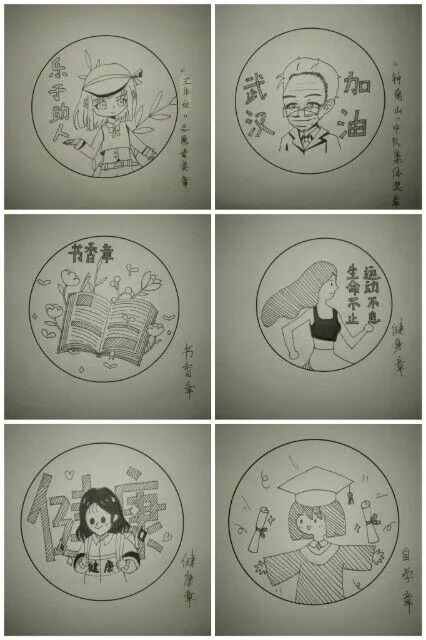 乐于助人
武汉
加油
“钟南山”中队集体奖章
书香章
书香章
生命不止
运动不息
健身章
健康
健康
健康章
自学章